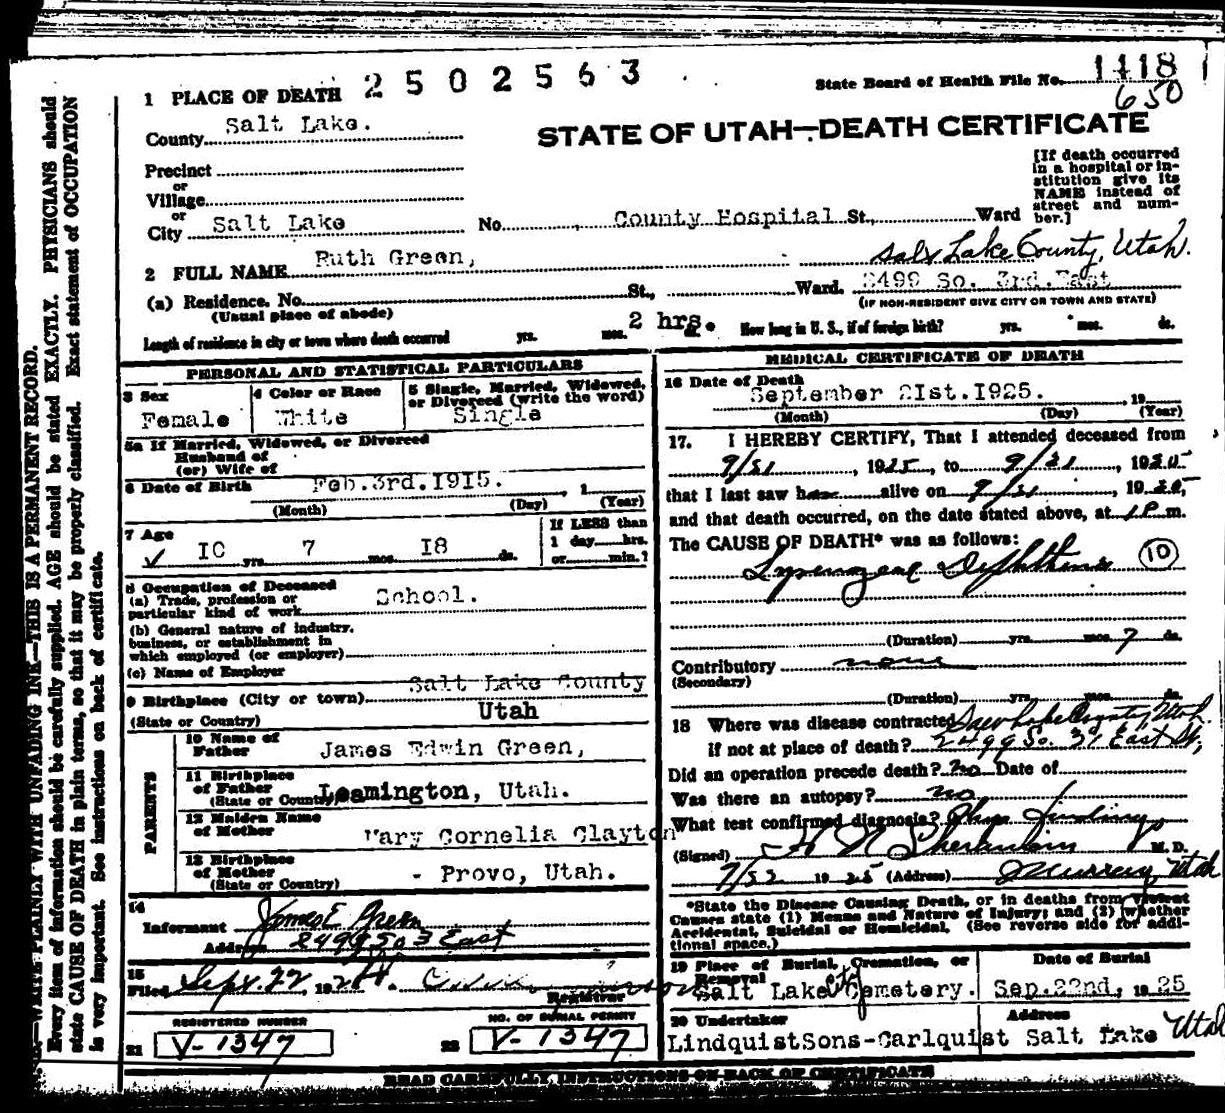 2502563
State Board of Health File No. 1118
650
1 PLACE OF DEATH
County Salt Lake.
STATE OF UTAH—DEATH CERTIFICATE
Precinct
or
Village
or
City Salt Lake No. County Hospital St., Ward
[If death occurred
in a hospital or in-
stitution give its
NAME instead of
street and num-
ber.]
2 FULL NAME Ruth Green,
Salt Lake County, Utah.
(a) Residence. No. St., Ward. 2499 So. 3rd. East
(Usual place of abode)
(IF NON-RESIDENT GIVE CITY OR TOWN AND STATE)
Length of residence in city or town where death occurred yrs. mos. 2 hrs. How long in U. S., if of foreign birth? yrs. mos. ds.
PERSONAL AND STATISTICAL PARTICULARS
3 Sex
Female
4 Color or Race
White
5 Single, Married, Widowed,
or Divorced (write the word)
Single
5a If Married, Widowed, or Divorced
Husband of
(or) Wife of
6 Date of Birth Feb.3rd.1915. , 1
(Month) (Day) (Year)
7 Age
10 yrs. 7 mos. 18 ds.
If LESS than
1 day hrs.
or min.?
8 Occupation of Deceased
(a) Trade, profession or
particular kind of work School.
(b) General nature of industry,
business, or establishment in
which employed (or employer)
(c) Name of Employer
9 Birthplace (City or town) Salt Lake County
(State or Country) Utah
PARENTS
10 Name of
Father James Edwin Green,
11 Birthplace
of Father
(State or Country) Leamington, Utah.
12 Maiden Name
of Mother Mary Cornelia Clayton
13 Birthplace
of Mother
(State or Country) - Provo, Utah.
14
Informant James E Green
Address 2499 So 3 East
15
Filed Sept. 22 192
Registrar
REGISTERED NUMBER
21 V-1347
NO. OF BURIAL PERMIT
22 V-1347
MEDICAL CERTIFICATE OF DEATH
16 Date of Death
September 21st.1925. , 19
(Month) (Day) (Year)
17. I HEREBY CERTIFY, That I attended deceased from
9/21, 1925, to 9/21, 1925
that I last saw h alive on 9/21, 1925,
and that death occurred, on the date stated above, at 1 P m.
The CAUSE OF DEATH* was as follows:
Diphtheria 10
(Duration) yrs. mos. 7 ds.
Contributory none
(Secondary)
(Duration) yrs. mos. ds.
18 Where was disease contracted Salt Lake County, Utah
if not at place of death? 2499 So. 3rd East St,
Did an operation precede death? no Date of
Was there an autopsy? no
What test confirmed diagnosis? Phys findings
(Signed) M. D.
1925 (Address) Murray, Utah
*State the Disease Causing Death, or in deaths from Violent
Causes state (1) Means and Nature of Injury; and (2) whether
Accidental, Suicidal or Homicidal. (See reverse side for addi-
tional space.)
19 Place of Burial, Cremation, or
Removal
Salt Lake City Cemetery.
Date of Burial
Sep.22nd, 1925
20 Undertaker Address
LindquistSons-Carlquist Salt Lake Utah
READ CAREFULLY INSTRUCTIONS ON BACK OF CERTIFICATE
WRITE PLAINLY WITH UNFADING INK—THIS IS A PERMANENT RECORD.
Every item of information should be carefully supplied. AGE should be stated EXACTLY. PHYSICIANS should
state CAUSE OF DEATH in plain terms, so that it may be properly classified. Exact statement of OCCUPATION
is very important. See instructions on back of certificate.